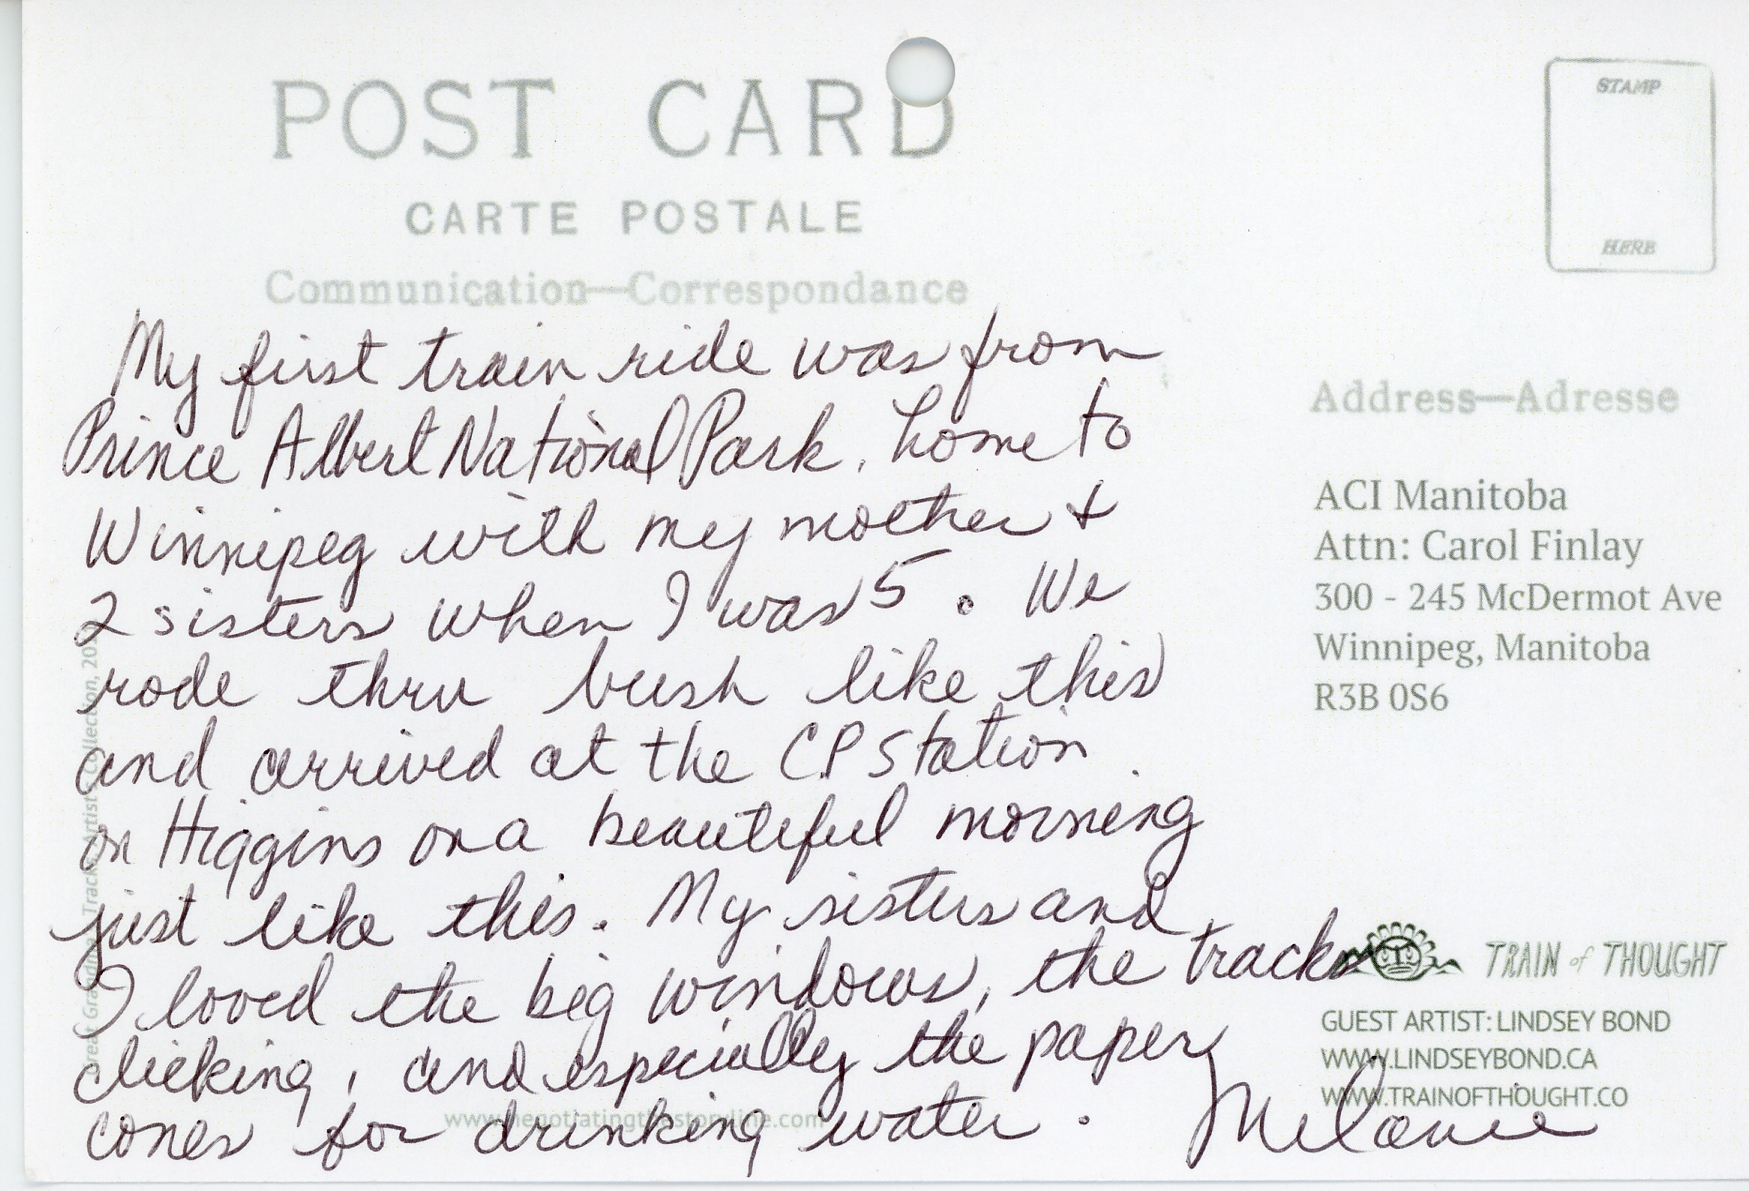 POST CARD
CARTE POSTALE
Communication—Correspondance
My first train ride was from
Prince Albert National Park, home to
Winnipeg with my mother &
2 sisters when I was 5. We
rode thru bush like this
and arrived at the CP Station
on Higgins on a beautiful morning
just like this. My sisters and
I loved the big windows, the tracks
clicking, and especially the paper
cones for drinking water.
Melanie
www.negotiatingthestoryline.com
Tracks Artist's Collection, 20
STAMP
HERE
Address—Adresse
ACI Manitoba
Attn: Carol Finlay
300 - 245 McDermot Ave
Winnipeg, Manitoba
R3B 0S6
TRAIN of THOUGHT
GUEST ARTIST: LINDSEY BOND
WWW.LINDSEYBOND.CA
WWW.TRAINOFTHOUGHT.CO